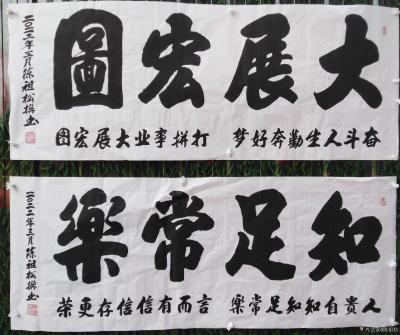 大展宏圖
奋斗人生勤奔好梦 打拼事业大展宏图
二〇二二年三月陈祖松撰书
知足常樂
人贵自知知足常樂 言而有信信存更荣
二〇二二年三月陈祖松撰书